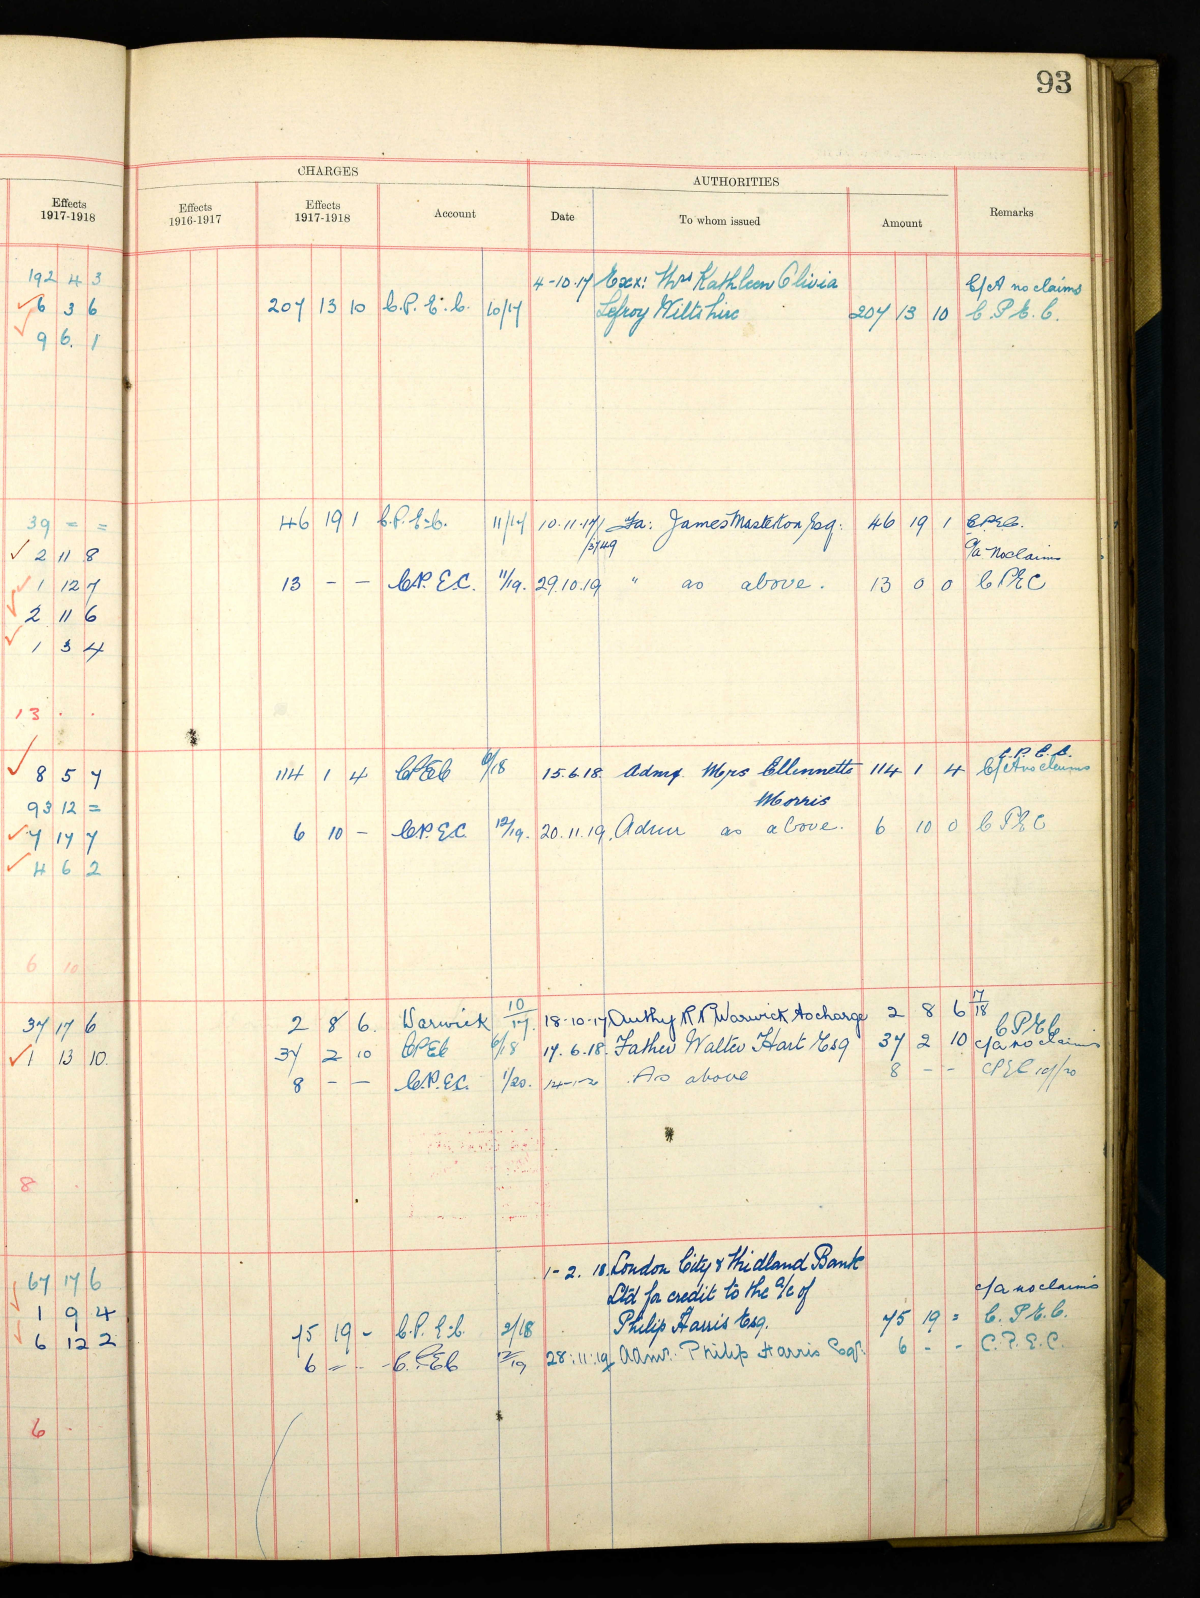 93
CHARGES
AUTHORITIES
Effects 1917-1918
Effects 1916-1917
Effects 1917-1918
Account
Date
To whom issued
Amount
Remarks
192 4 3 4-10-17 Exx: Mrs Kathleen Olivia C/A no claims
6 3 6 207 13 10 C.P.E.C. 10/17 Lefroy Wiltshire 207 13 10 C.P.E.C.
9 6. 1
39 = = 46 19 1 C.P.E.C. 11/17 10.11.17 Fa: James Masterton Esq: 46 19 1 C.P.E.C.
2 11 8 C/a No claims
1 12 7 13 - - C.P.E.C. 11/19. 29.10.19 " as above. 13 0 0 CPEC
2 11 6
1 3 4
13 . .
C.P.E.C.
8 5 7 114 1 4 CPEC 6/18 15.6.18 Admx Mrs Ellennette 114 1 4 C/A no claims
93 12 = Morris
7 17 7 6 10 - C.P.E.C. 12/19. 20.11.19. Admx as above. 6 10 0 CPEC
4 6 2
6 10
37 17 6 2 8 6. Warwick 10/17. 18-10-17 Authy R.P. Warwick to charge 2 8 6 17/18
CPEC
1 13 10. 37 2 10 CPEC 6/18 17.6.18. Father Walter Hart Esq 37 2 10 c/a no claims
8 - - C.P.E.C. 1/20. As above 8 - - CPEC
8 .
67 17 6 1-2.18. London City & Midland Bank
1 9 4 Ltd for credit to the a/c of c/a no claims
6 12 2 75 19 - C.P.E.C. 2/18 Philip Harris Esq. 75 19 = C.P.E.C.
6 = - C.P.E.C. 12/19 28:11:19 Admr. Philip Harris Esqr. 6 - - C.P.E.C.
6 .